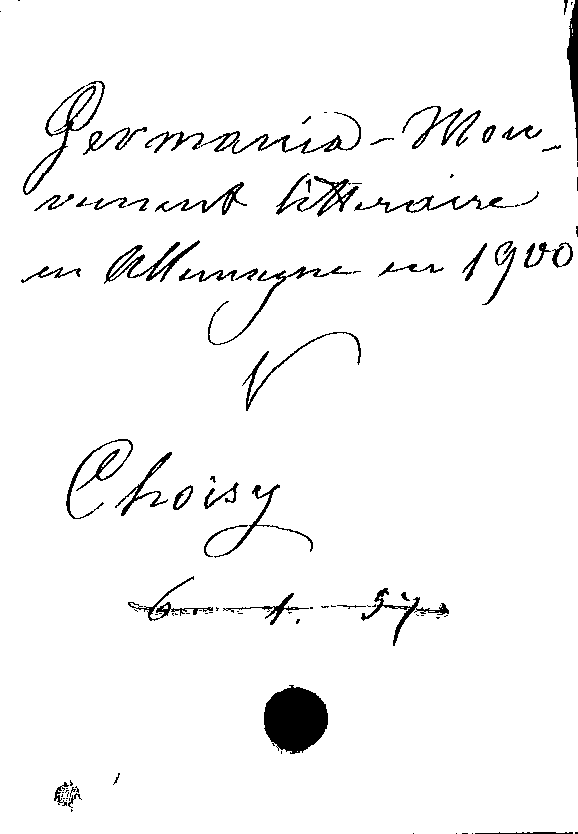 Germania - Mou-
vement littéraire
en Allemagne en 1900
V
Choisy
6. 1. 57.